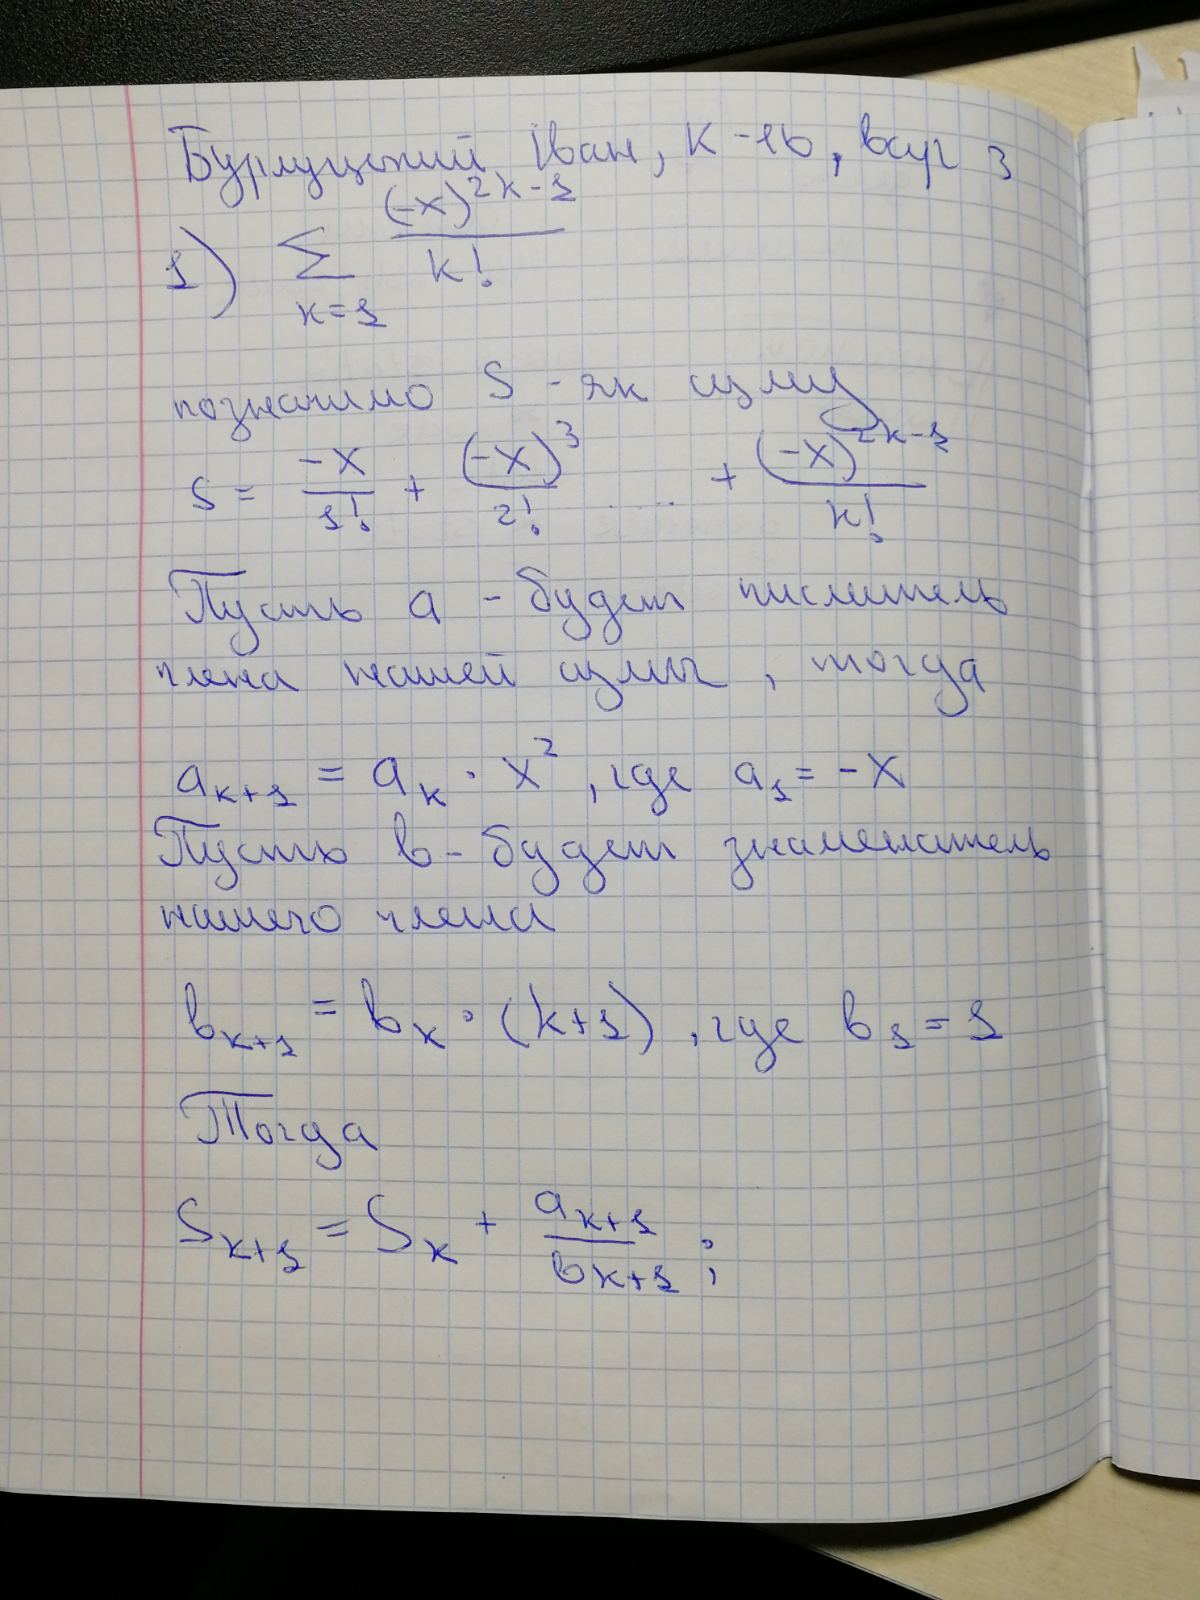 Бурлуцкий Іван, К-16, вар 3
1) ∑ (-x)^{2k-1} / k!
k=1
позначимо S - як суму
S = -x/1! + (-x)^3/2! ..... + (-x)^{2k-1}/k!
Пусть a - будет числитель
члена нашей сумы, тогда
a_{k+1} = a_k · x^2, где a_1 = -x
Пусть b - будет знаменатель
нашего члена
b_{k+1} = b_k · (k+1), где b_1 = 1
Тогда
S_{k+1} = S_k + a_{k+1}/b_{k+1};